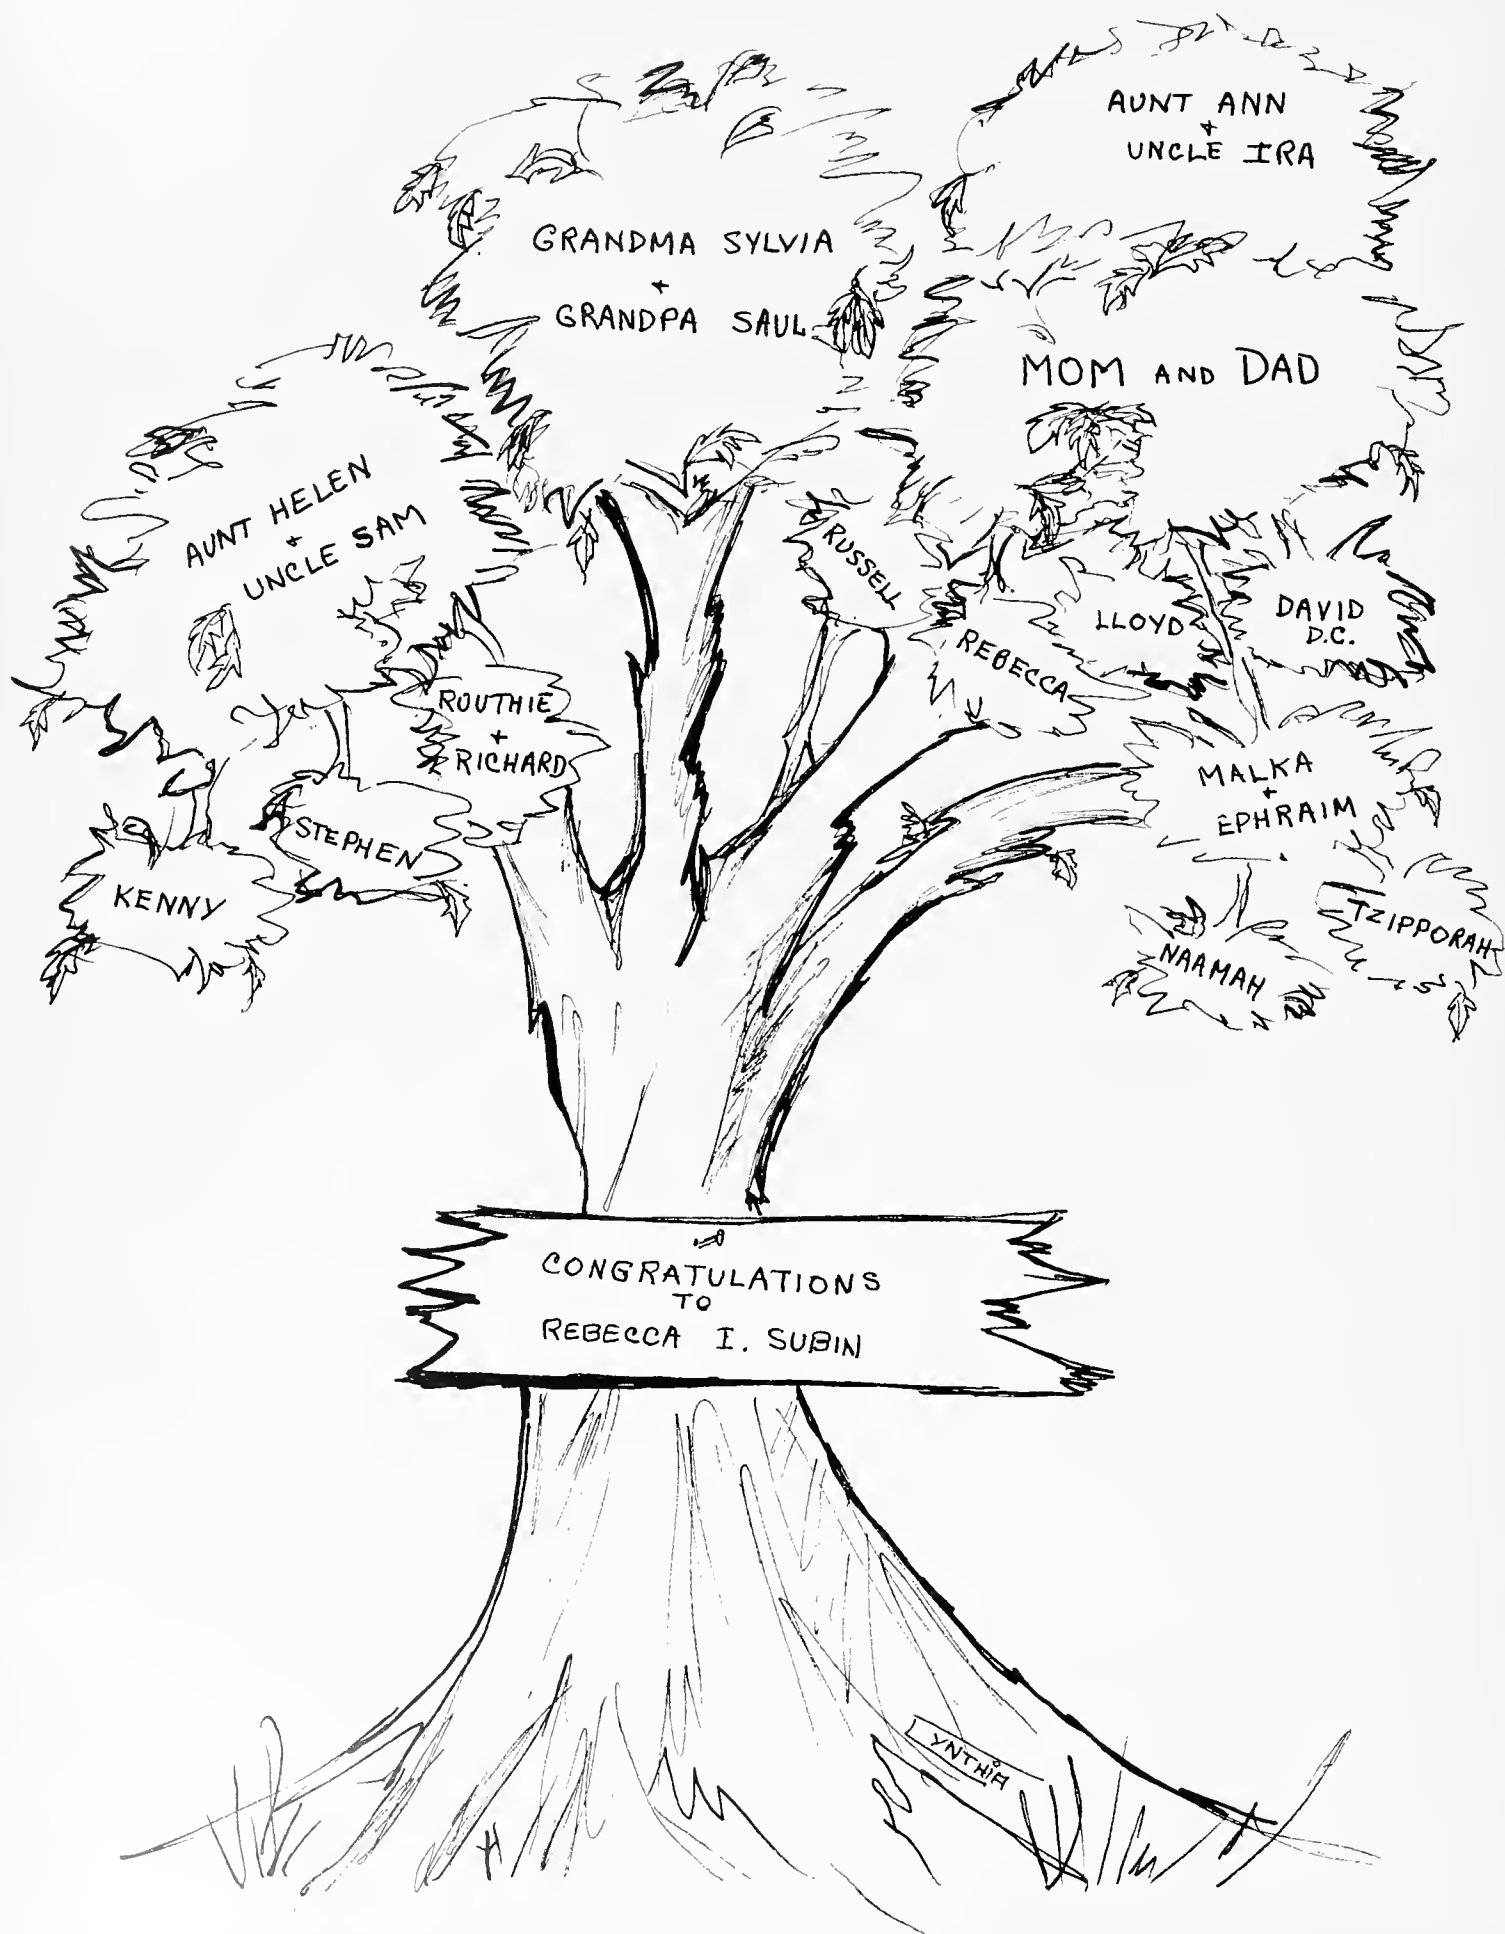 AUNT ANN
+
UNCLE IRA
GRANDMA SYLVIA
+
GRANDPA SAUL
MOM AND DAD
AUNT HELEN
+
UNCLE SAM
RUSSELL
REBECCA
LLOYD
DAVID
D.C.
ROUTHIE
+
RICHARD
STEPHEN
KENNY
MALKA
+
EPHRAIM
NAAMAH
TZIPPORAH
CONGRATULATIONS
TO
REBECCA I. SUBIN
YNTHIA